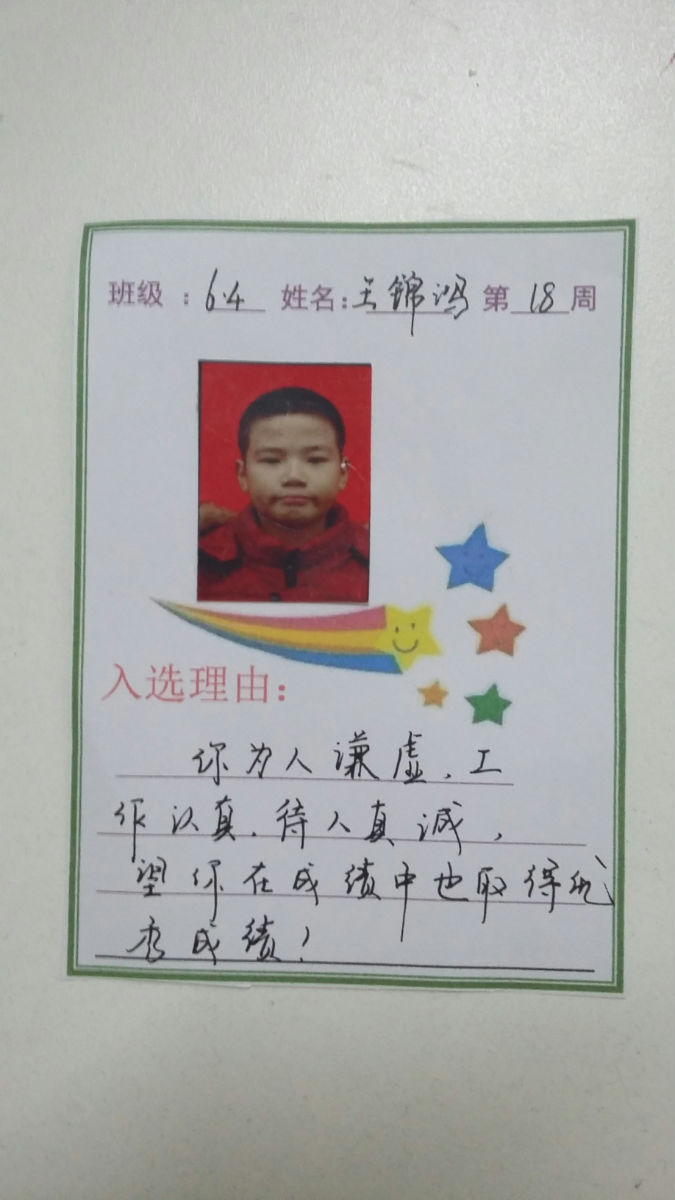 班级：6.4 姓名：王锦鸿 第18周
入选理由：
你为人谦虚、工
作认真、待人真诚，
望你在成绩中也取得优
秀成绩！